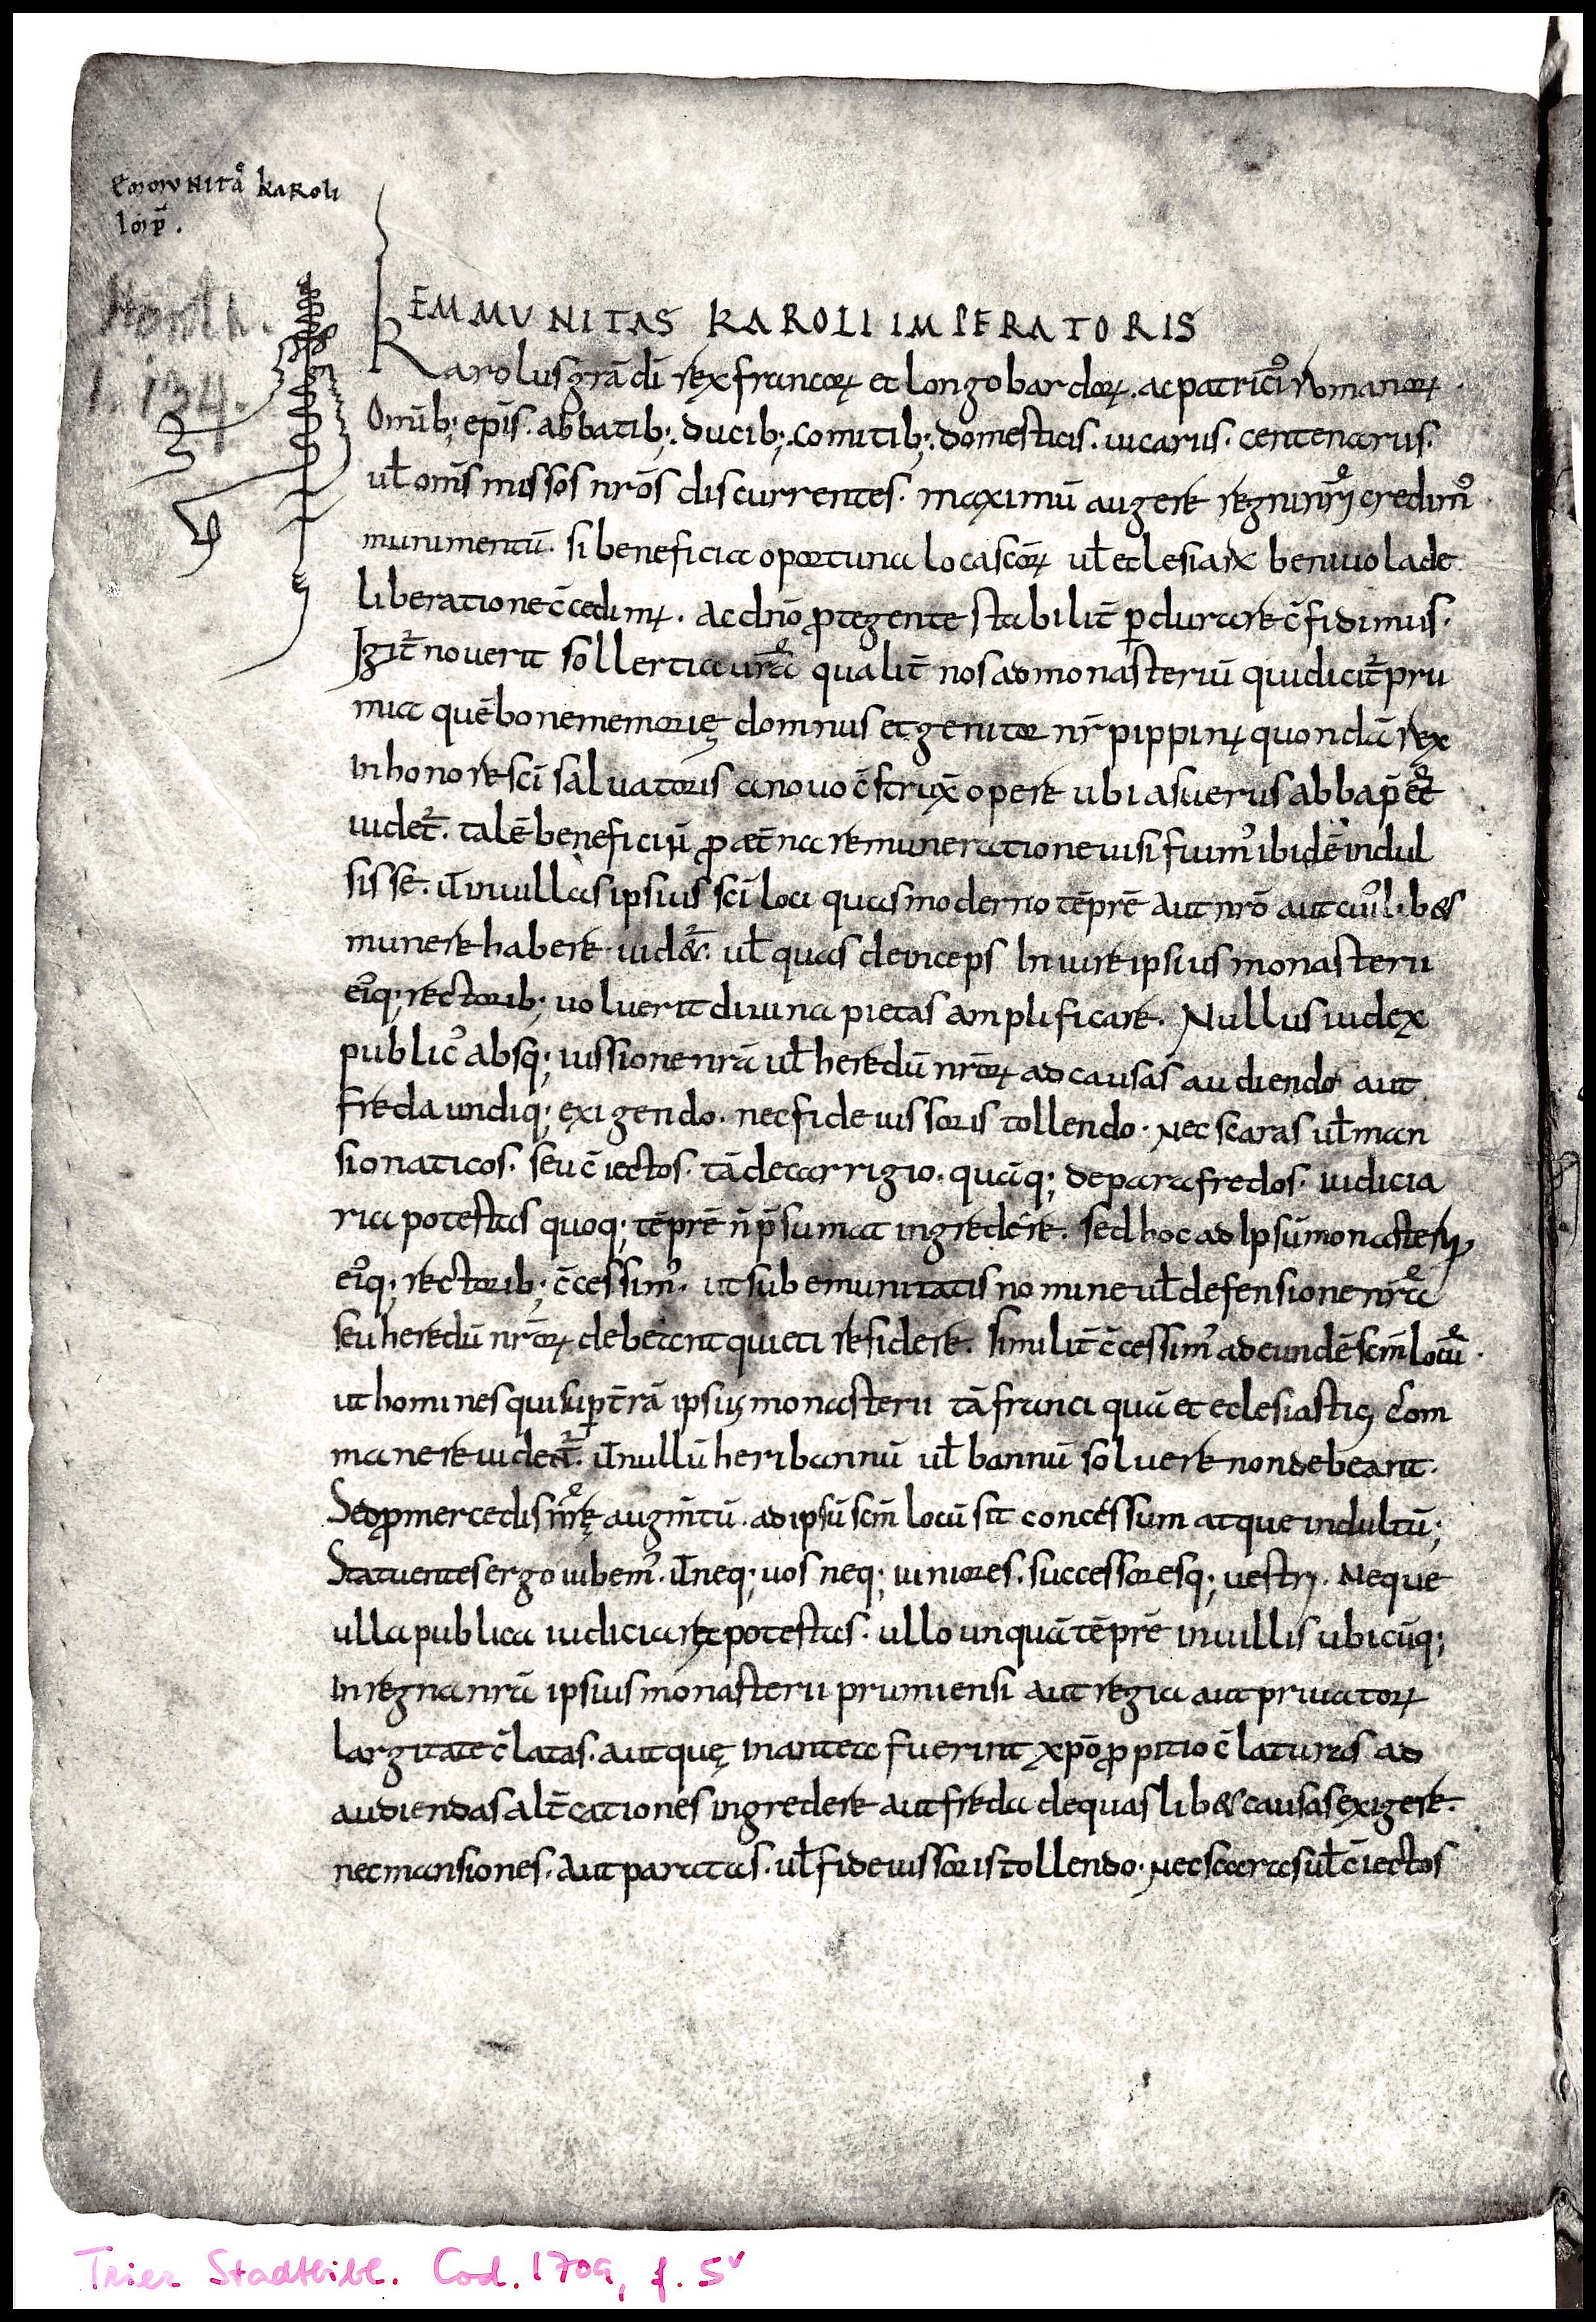 Emmunitas karoli
Imp̄.
Hontheim
I. 134.
EMMUNITAS KAROLI IMPERATORIS
Karolus gr̄a dī rex francoꝝ et longobardoꝝ. ac patriciꝰ romanoꝝ.
Omīb; epīs. abbatib;. ducib;. comitib;. domesticis. uicariis. centenariis.
uł om̄s missos nr̄os discurrentes. maximū augere regni nr̄i credimꝰ
munimentū. si beneficia oportuna loca sc̄oꝝ uł ecclesiaꝝ beniuola de
liberatione c̄cedimꝰ. ac dn̄o ꝓtegente stabilit̄ ꝑdurare c̄fidimus.
Igit̄ nouerit sollertia ur̄a qualit̄ nos ad monasteriū qui dicit̄ pru
mia quē bone memorię domnus et genitor nr̄ pippinꝰ quondā rex
in honore sc̄i saluatoris a nouo c̄strux̄ opere ubi asuerus abba p̄ee
uidet̄. talē beneficiū ꝓ aet̄na remuneratione uisi fuimꝰ ibidē indul
sisse. ut̄ in uillas ipsius sc̄i loci quas moderno tēpr̄e aut nr̄o aut cuiꝰlib&
munere habere uid&̄. uł quas deinceps in iure ipsius monasterii
eiꝰq; rectorib; uoluerit diuina pietas amplificare. Nullus iudex
publicꝰ absq; iussione nr̄a uł heredū nr̄oꝝ ad causas audiendo aut
freda undiq; exigendo. nec fideiussoris tollendo. nec scaras uł man
sionaticos. seu c̄iectos. tā de carrigio. quāq; de parafredos. iudicia
ria potestas quoq; tēpr̄e n̄ p̄sumat ingredere. sed hoc ad ipsū monasterii
eiꝰq; rectorib; c̄cessimꝰ. ut sub emunitatis nomine uł defensione nr̄a
seu heredū nr̄oꝝ debeant quieti residere. similit̄ c̄cessimꝰ ad eundē sc̄m locū.
ut homines qui suꝑ t̄rā ipsius monasterii tā franci quā et ecclesiastici com
manere uident̄. ut̄ nullū heribannū uł bannū soluere non debeant.
Sed ꝓ mercedis nr̄ę augm̄tū. ad ipsū sc̄m locū sit concessum atque indultū;
Statuentes ergo iubemꝰ. ut̄ neq; uos neq; iuniores. successoresq; uestri. Neque
ulla publica iudiciaria potestas. ullo unquā tēpr̄e in uillis ubicūq;
in regna nr̄a ipsius monasterii prumiensi aut regia aut priuatoꝝ
largitate c̄latas. aut quę inantea fuerint xp̄o ꝓpitio c̄laturas ad
audiendas alt̄cationes ingredere aut freda de quaslib& causas exigere.
nec mansiones. aut paratas. uł fideiussoris tollendo. nec scaras uł c̄iectos
Trier Stadtbibl. Cod. 1709, f. 5v